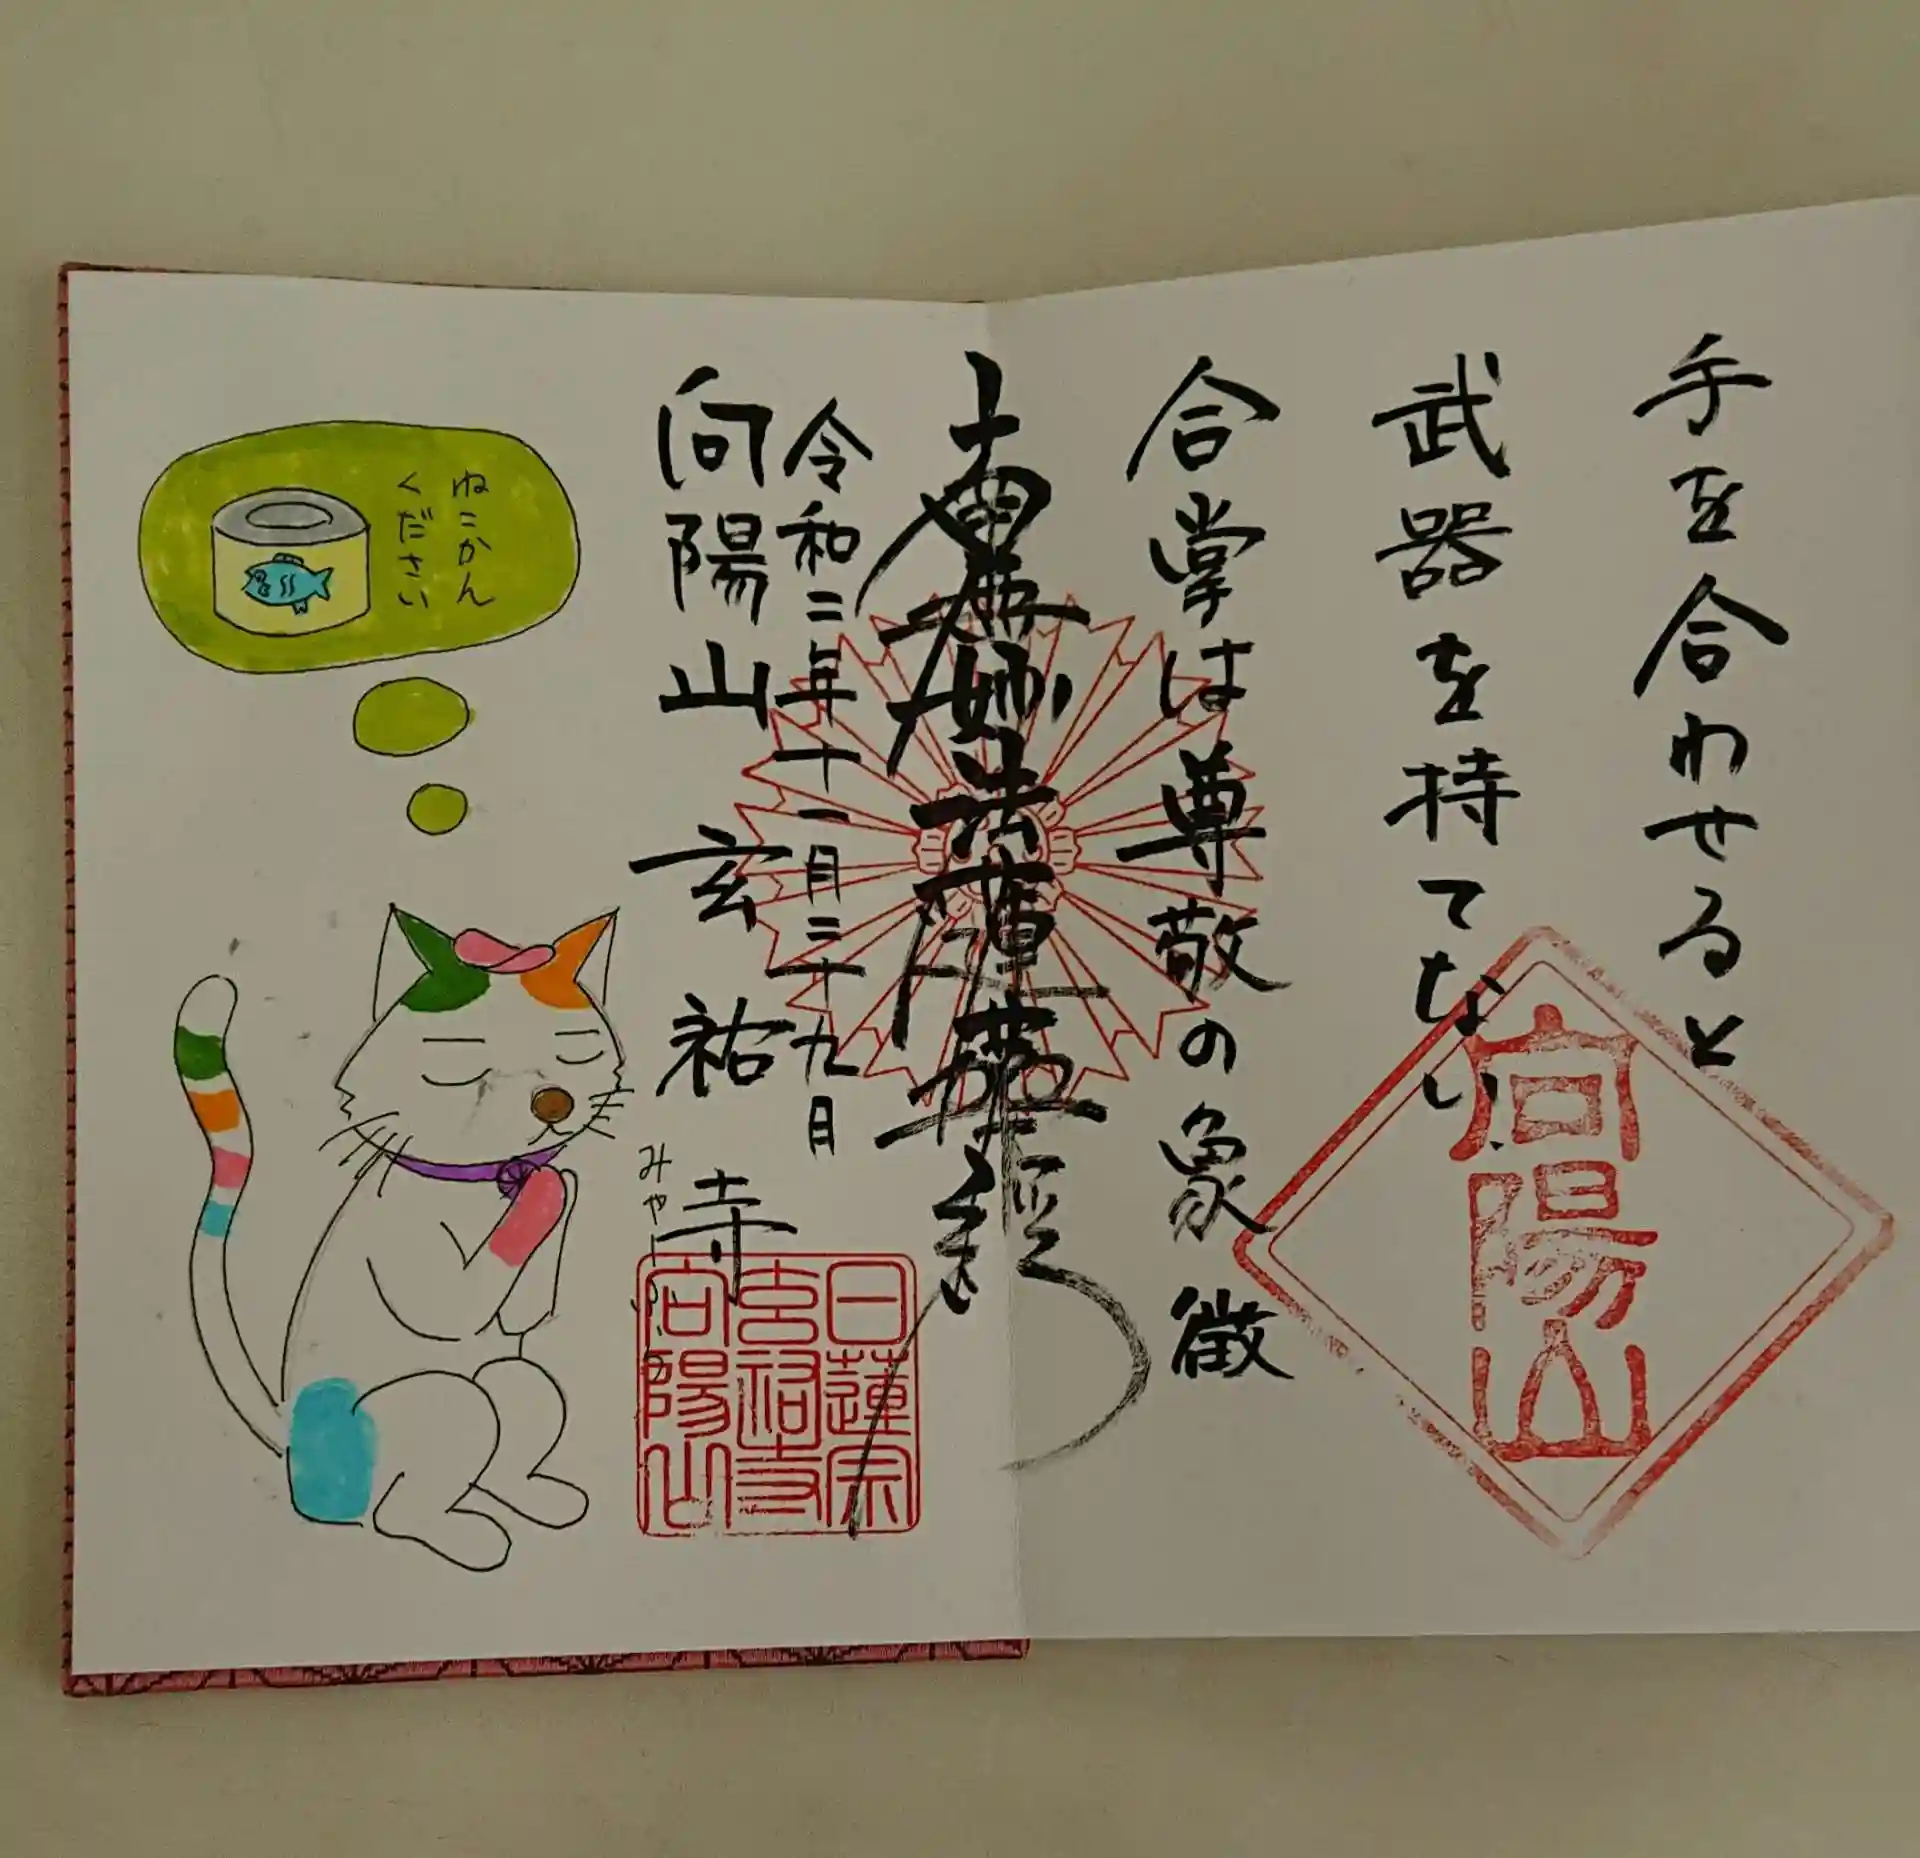 手を合わせると
武器を持てない
合掌は尊敬の象徴
南無妙法蓮華経
令和二年十一月二十九日
向陽山 玄祐寺
ねこかん
ください
向陽山
日蓮宗
玄祐寺
向陽山